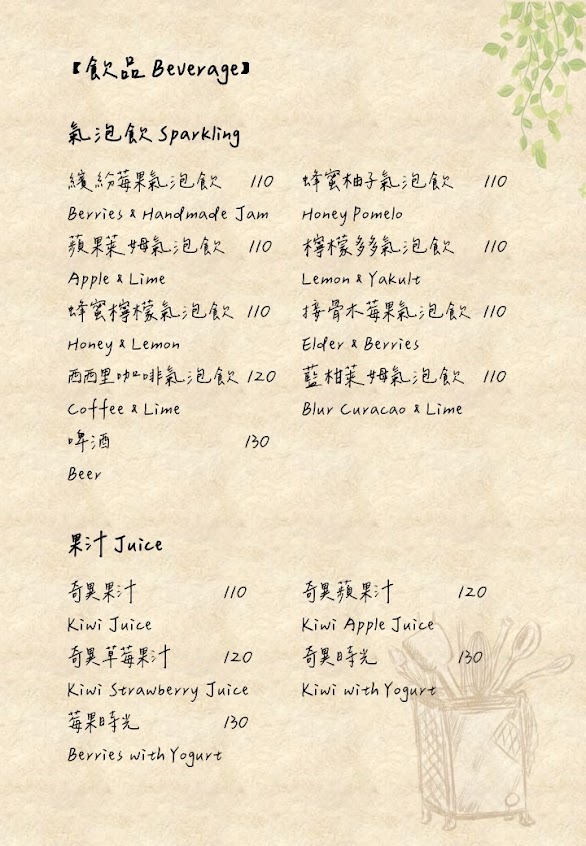 【飲品 Beverage】
氣泡飲 Sparkling
繽紛莓果氣泡飲 110
Berries & Handmade Jam
蜂蜜柚子氣泡飲 110
Honey Pomelo
蘋果萊姆氣泡飲 110
Apple & Lime
檸檬多多氣泡飲 110
Lemon & Yakult
蜂蜜檸檬氣泡飲 110
Honey & Lemon
接骨木莓果氣泡飲 110
Elder & Berries
西西里咖啡氣泡飲 120
Coffee & Lime
藍柑萊姆氣泡飲 110
Blur Curacao & Lime
啤酒 130
Beer
果汁 Juice
奇異果汁 110
Kiwi Juice
奇異蘋果汁 120
Kiwi Apple Juice
奇異草莓果汁 120
Kiwi Strawberry Juice
奇異時光 130
Kiwi with Yogurt
莓果時光 130
Berries with Yogurt